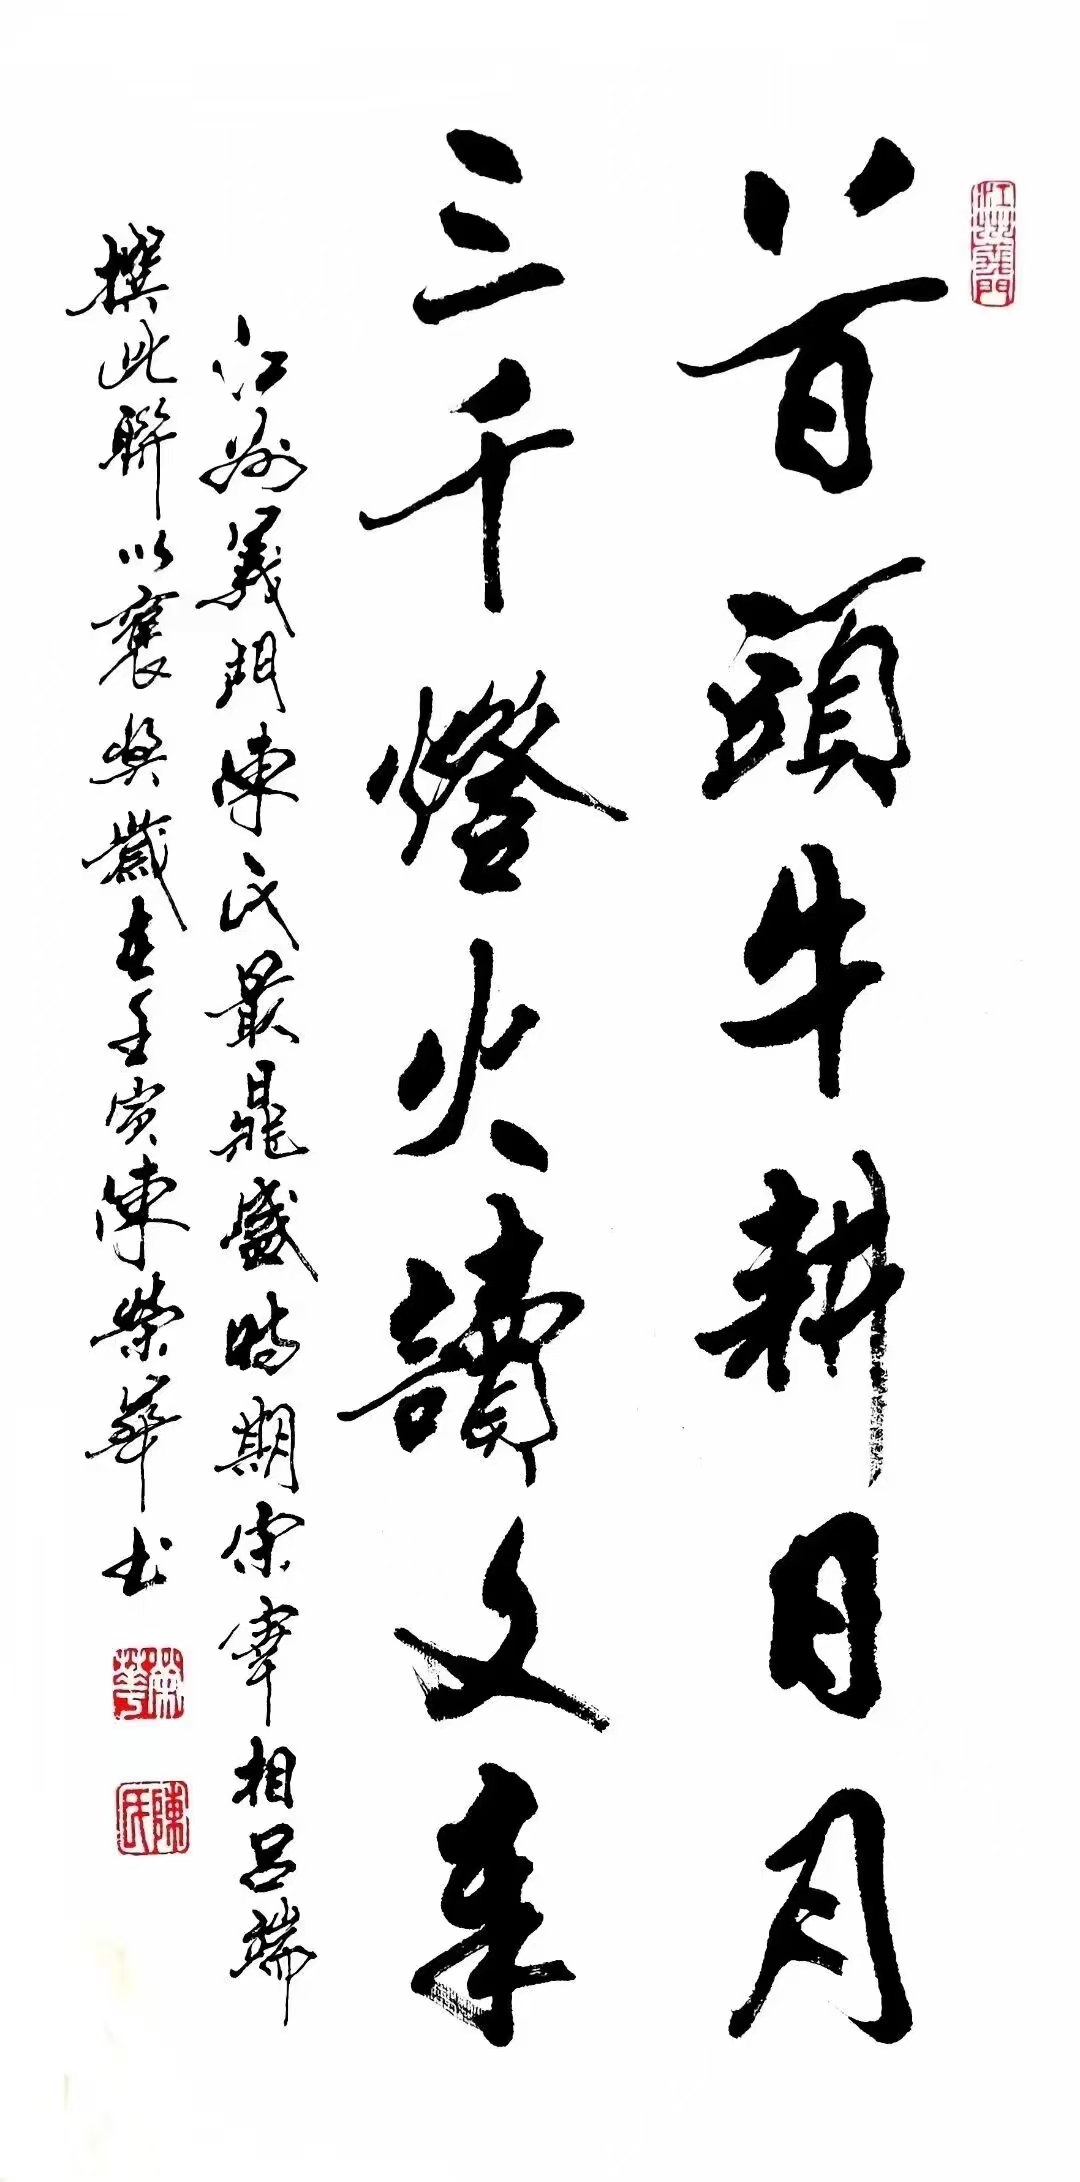 八百頭牛耕日月
三千燈火讀文章
江州義門陳氏最鼎盛時期宋宰相呂端
撰此聯以褒奬歲在壬寅陳榮華書
江州義門
榮華
陳氏